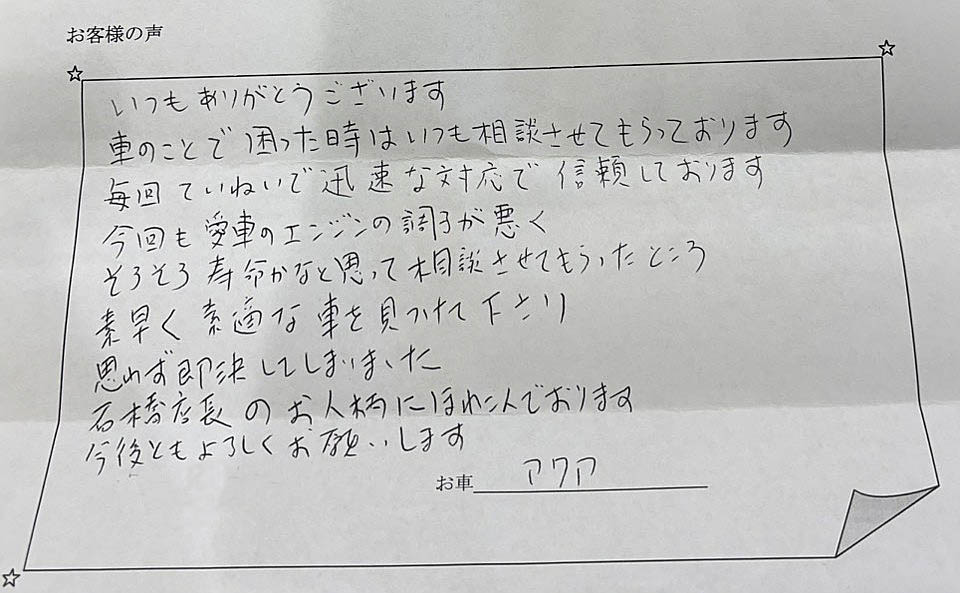 お客様の声
いつもありがとうございます
車のことで困った時はいつも相談させてもらっております
毎回ていねいで迅速な対応で信頼しております
今回も愛車のエンジンの調子が悪く
そろそろ寿命かなと思って相談させてもらったところ
素早く素適な車を見つけて下さり
思わず即決してしまいました
石橋店長のお人柄にほれこんでおります
今後ともよろしくお願いします
お車 アクア